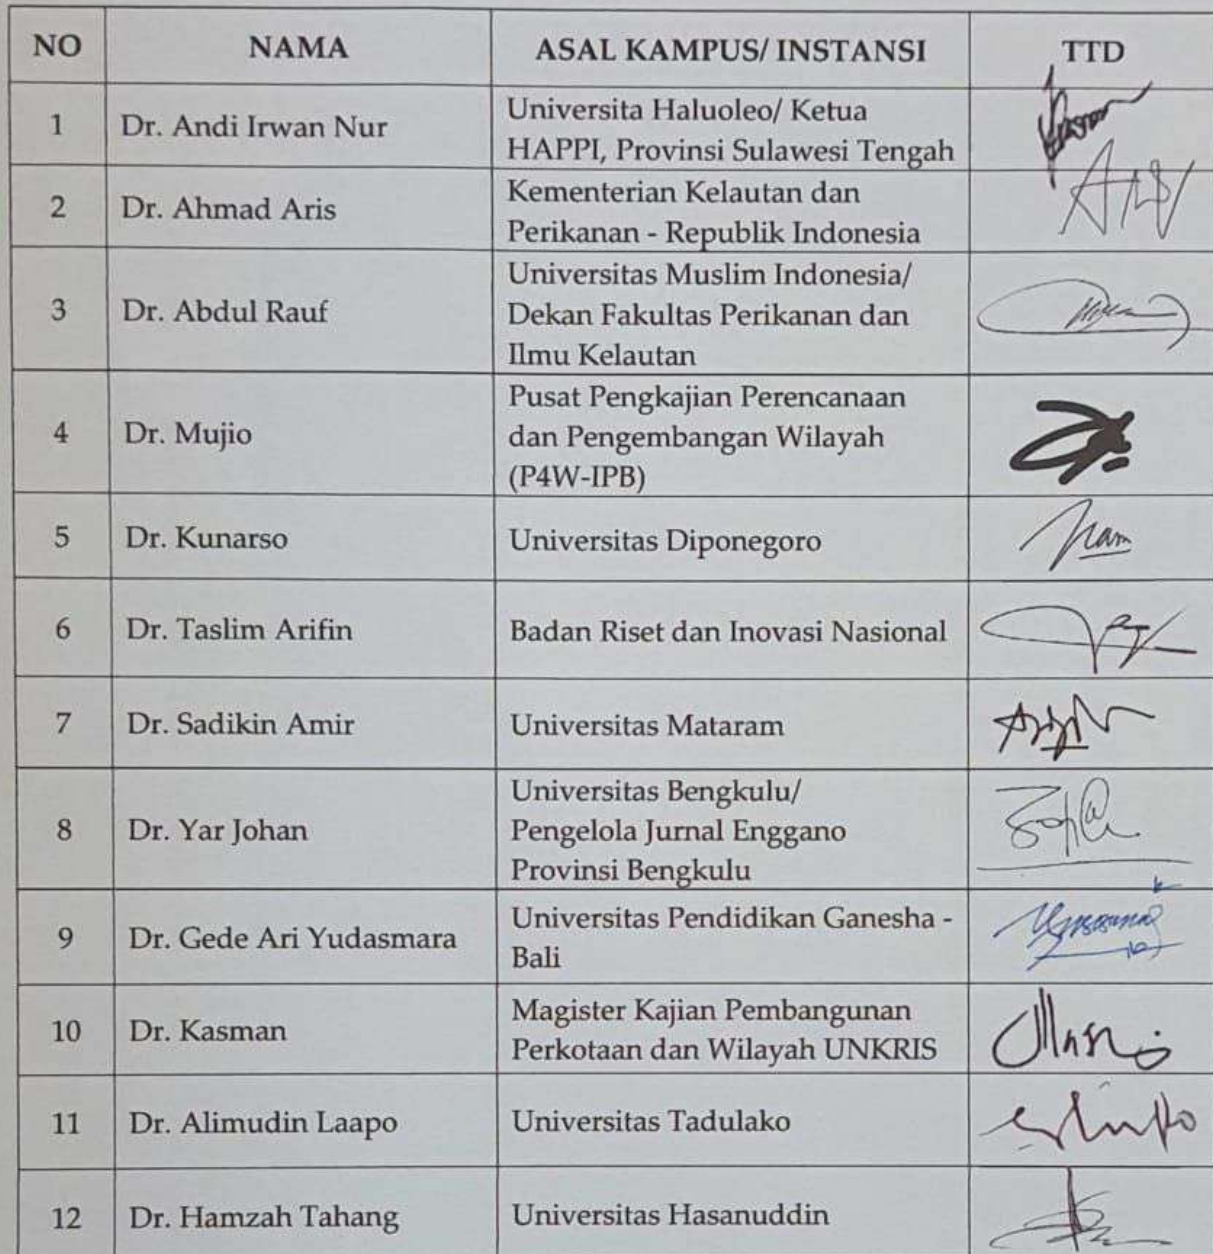 NO NAMA ASAL KAMPUS/ INSTANSI TTD
1 Dr. Andi Irwan Nur Universita Haluoleo/ Ketua
HAPPI, Provinsi Sulawesi Tengah
2 Dr. Ahmad Aris Kementerian Kelautan dan
Perikanan - Republik Indonesia
3 Dr. Abdul Rauf Universitas Muslim Indonesia/
Dekan Fakultas Perikanan dan
Ilmu Kelautan
4 Dr. Mujio Pusat Pengkajian Perencanaan
dan Pengembangan Wilayah
(P4W-IPB)
5 Dr. Kunarso Universitas Diponegoro
6 Dr. Taslim Arifin Badan Riset dan Inovasi Nasional
7 Dr. Sadikin Amir Universitas Mataram
8 Dr. Yar Johan Universitas Bengkulu/
Pengelola Jurnal Enggano
Provinsi Bengkulu
9 Dr. Gede Ari Yudasmara Universitas Pendidikan Ganesha -
Bali
10 Dr. Kasman Magister Kajian Pembangunan
Perkotaan dan Wilayah UNKRIS
11 Dr. Alimudin Laapo Universitas Tadulako
12 Dr. Hamzah Tahang Universitas Hasanuddin